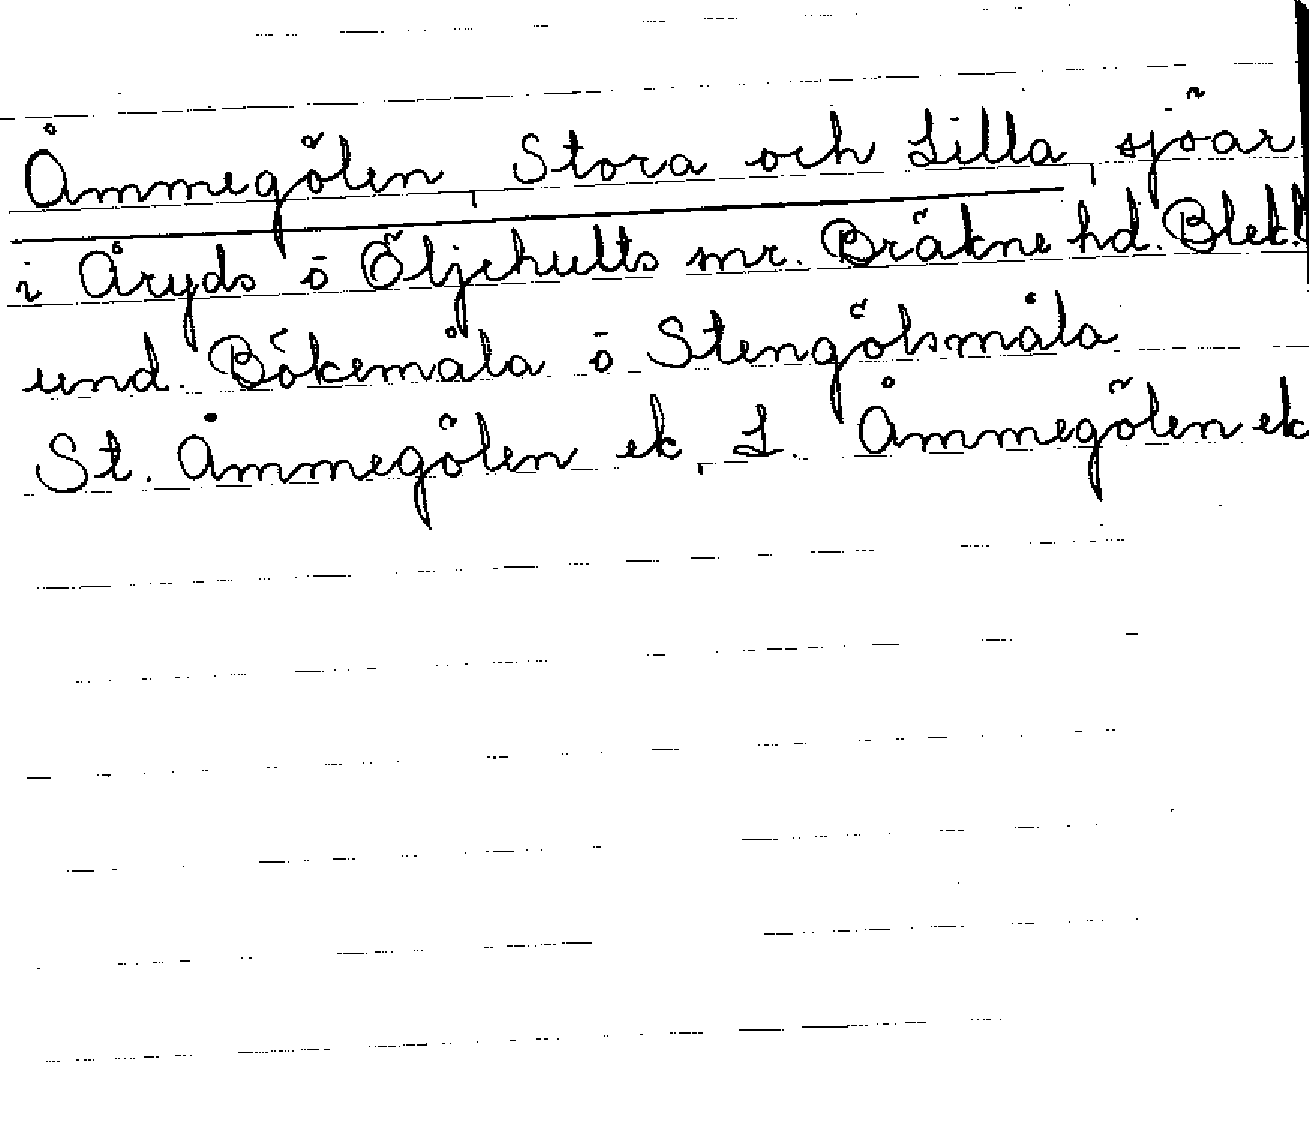 Åmmegölen, Stora och Lilla, sjöar
i Åryds o Öljehults snr. Bräkne hd. Blek.
und. Bökemåla o Stengölsmåla
St. Åmmegölen ek, L. Åmmegölen ek